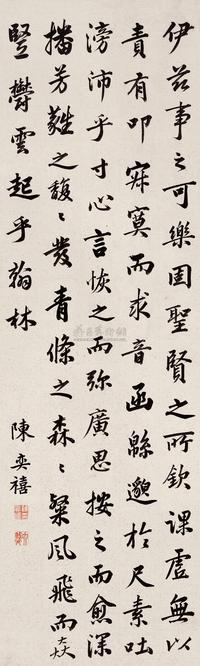 伊茲事之可樂固聖賢之所欽課虛無以
責有叩寂寞而求音函緜邈於尺素吐
滂沛乎寸心言恢之而彌廣思按之而愈深
播芳蕤之馥〻發青條之森〻粲風飛而猋
豎鬱雲起乎翰林
陳奕禧